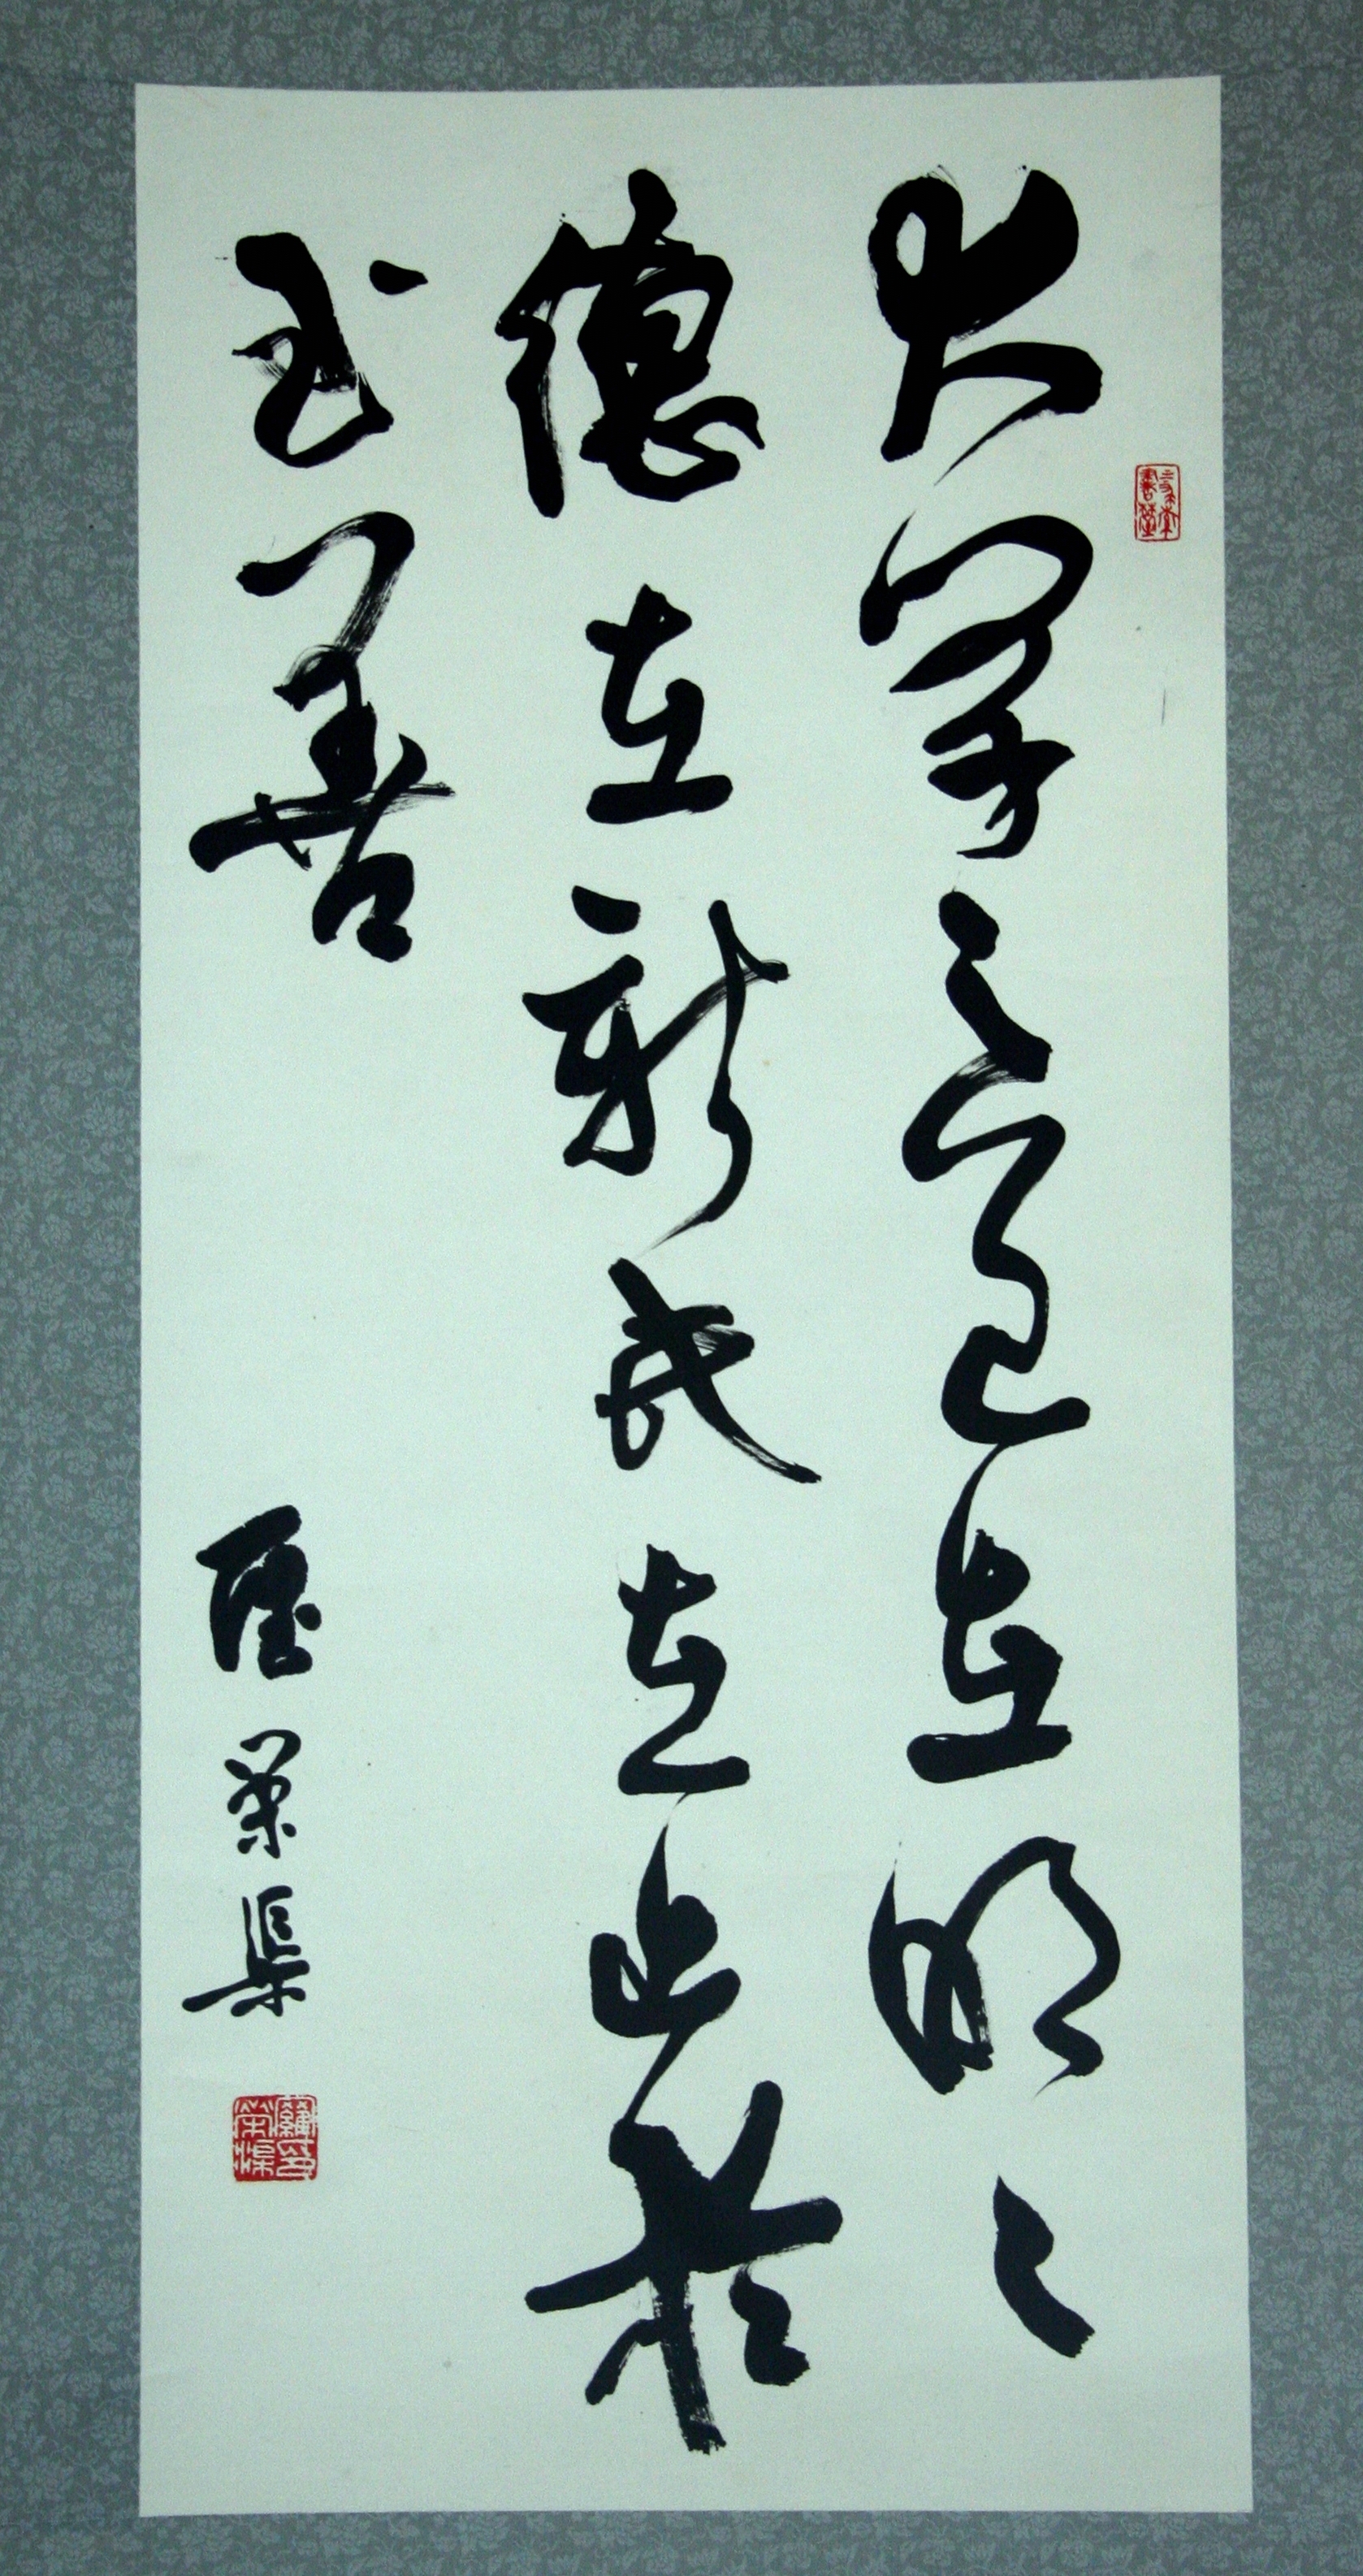 大學之道在明〻
德在新民在止於
至善
羅榮渠